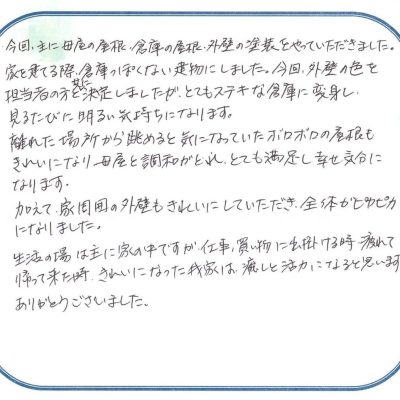 今回、主に母屋の屋根、倉庫の屋根、外壁の塗装をやっていただきました。
家を建てる際、倉庫っぽくない建物にしました。今回、外壁の色を
担当者の方と共に決定しましたが、とてもステキな倉庫に変身し、
見るたびに明るい気持ちになります。
離れた場所から眺めると気になっていたボロボロの屋根も
きれいになり母屋と調和がとれ、とても満足し幸せ気分に
なります。
加えて、家周囲の外壁もきれいにしていただき、全体がピカピカ
になりました。
生活の場は主に家の中ですが、仕事、買い物に出掛ける時、疲れて
帰って来た時、きれいになった我家は、癒しと活力になると思います
ありがとうございました。